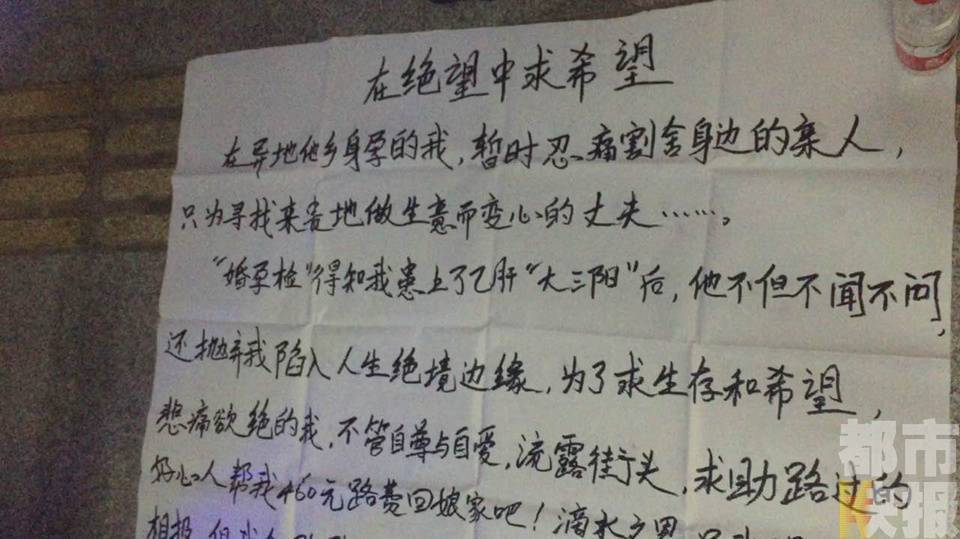 在绝望中求希望
在异地他乡身孕的我，暂时忍痛割舍身边的亲人，
只为寻找来贵地做生意而变心的丈夫……。
“婚孕检”得知我患上了乙肝“大三阳”后，他不但不闻不问，
还抛弃我陷入人生绝境边缘，为了求生存和希望，
悲痛欲绝的我，不管自尊与自爱，流露街头，求助路过的
好心人帮我460元路费回娘家吧！滴水之恩
相报
都市
快报